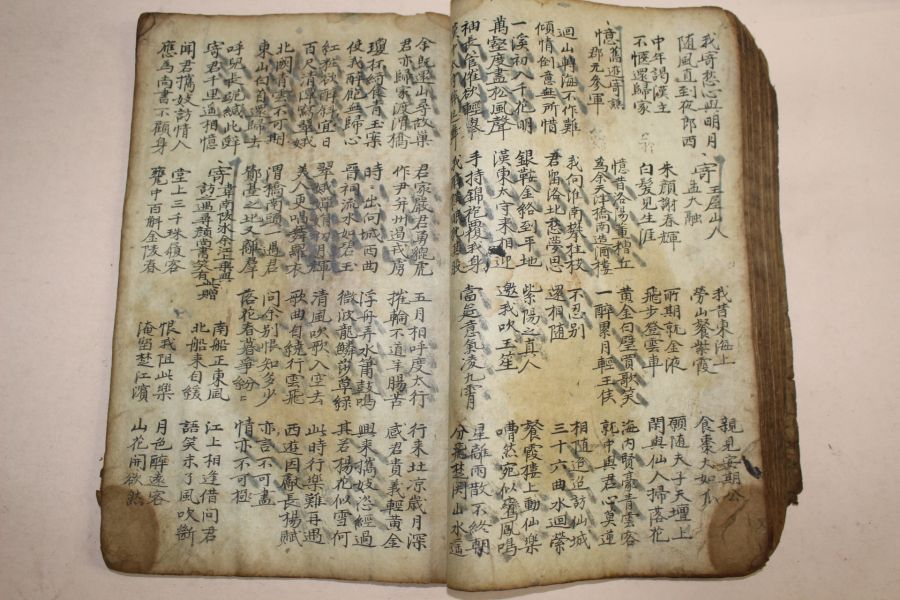 我寄愁心與明月
隨風直到夜郎西
寄王屋山人
孟大融
我昔東海上
勞山餐紫霞
親見安期公
食棗大如瓜
中年謁漢主
不愜還歸家
朱顏謝春輝
白髮見生涯
所期就金液
飛步登雲車
願隨夫子天壇上
閑與仙人掃落花
憶舊遊寄譙
郡元參軍
憶昔洛陽董糟丘
為余天津橋南造酒樓
黃金白璧買歌笑
一醉累月輕王侯
海內賢豪青雲客
就中與君心莫逆
迴山轉海不作難
傾情倒意無所惜
我向淮南攀桂枝
君留洛北愁夢思
不忍別
還相隨
相隨迢迢訪仙城
三十六曲水迴縈
一溪初入千花明
萬壑度盡松風聲
銀鞍金絡到平地
漢東太守來相迎
紫陽之真人
邀我吹玉笙
餐霞樓上動仙樂
嘈然宛似鸞鳳鳴
袖長管催欲輕舉
手持錦袍覆我身
當筵意氣凌九霄
星離雨散不終朝
分飛楚關山水遙
余既還山尋故巢
君亦歸家渡渭橋
君家嚴君勇貔虎
作尹并州遏戎虜
五月相呼度太行
摧輪不道羊腸苦
行來北涼歲月深
感君貴義輕黃金
瓊杯綺食青玉案
使我醉飽無歸心
時〻出向城西曲
晉祠流水如碧玉
浮舟弄水簫鼓鳴
微波龍鱗莎草綠
興來攜妓恣經過
其若楊花似雪何
紅粧欲醉斜宜日
百尺清潭寫翠娥
翠娥嬋娟初月輝
美人更唱舞羅衣
清風吹歌入空去
歌曲自繞行雲飛
此時行樂難再遇
西遊因獻長楊賦
北闕青雲不可期
東山白首還歸去
渭橋南頭一遇君
酇臺之北又離群
問余別恨知多少
落花春暮爭紛〻
言亦不可盡
情亦不可極
呼兒長跪緘此辭
寄君千里遙相憶
寄韋南陵冰余江上乘興
訪之遇尋顏尚書笑有此贈
南船正東風
北船來自緩
江上相逢借問君
語笑未了風吹斷
聞君攜妓訪情人
應為尚書不顧身
堂上三千珠履客
甕中百斛金陵春
恨我阻此樂
淹留楚江濱
月色醉遠客
山花開欲然